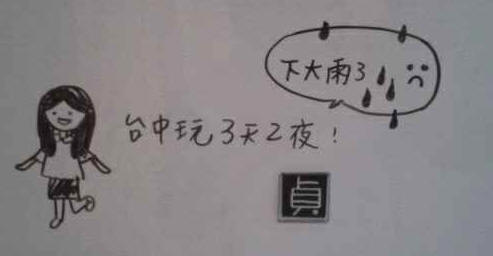 下大雨3
台中玩3天2夜!
貞